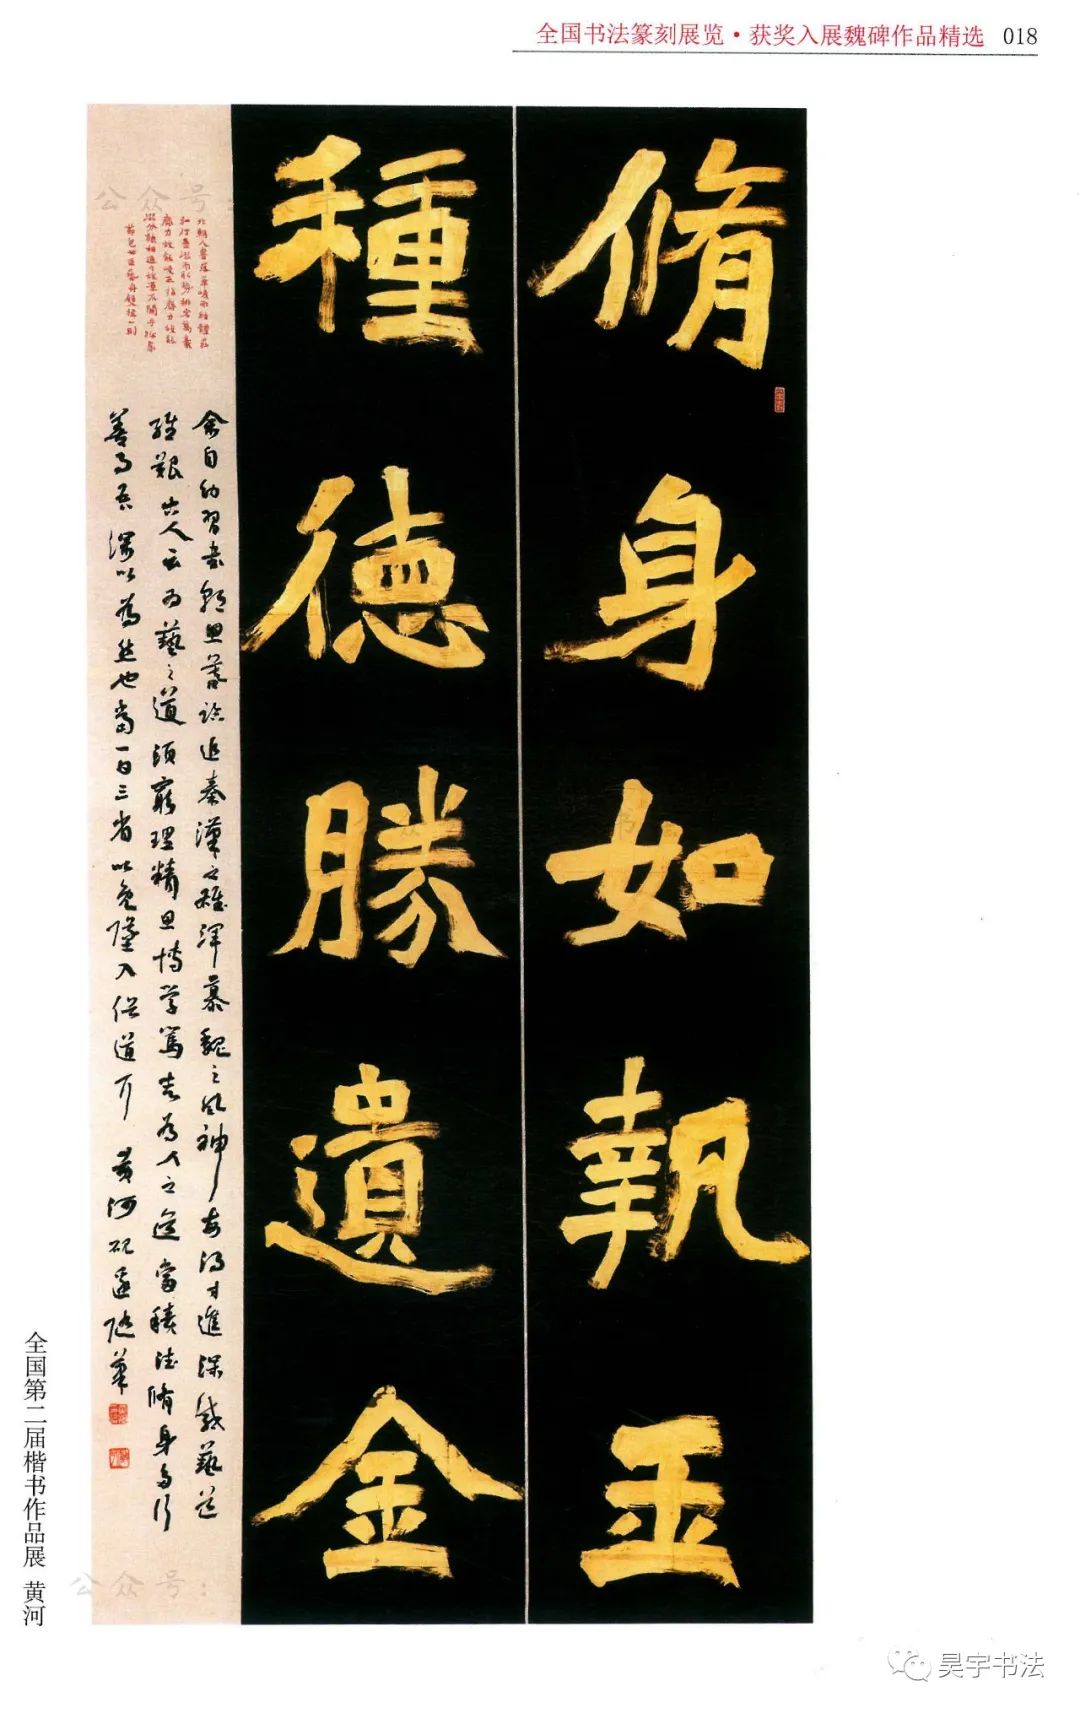 全国书法篆刻展览·获奖入展魏碑作品精选 018
脩身如執玉
種德勝遺金
余自幼習書朝思暮臨追秦漢之雄渾慕魏之風神每得寸進深感藝道
維艱古人云为藝之道須窮理精思博学篤志為人之道當積德脩身多行
善事吾深以為然也當一日三省以免墮入俗道耳 黄河砚边随筆
全国第二届楷书作品展 黄河
公众号:
公众号:
昊宇书法